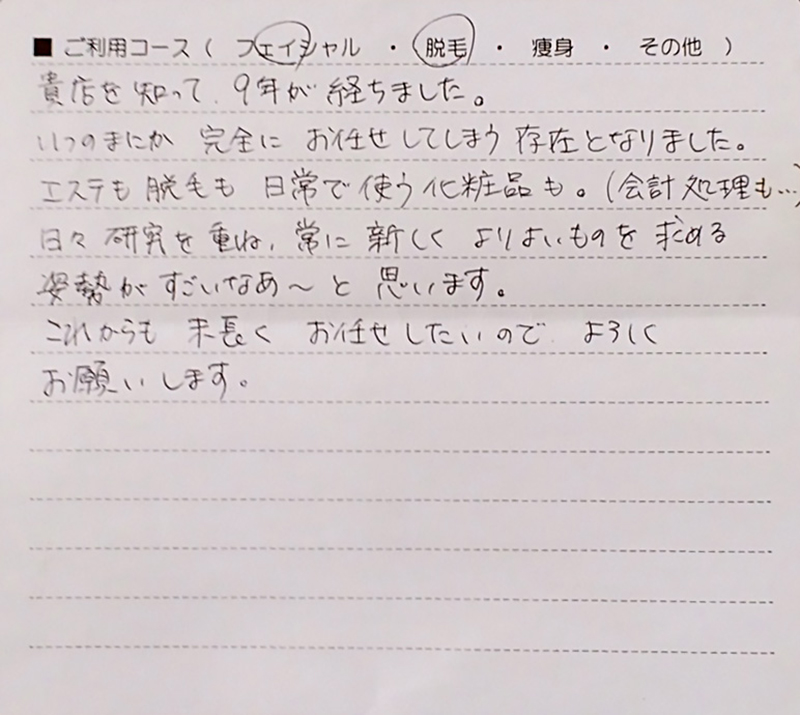 ■ ご利用コース（ フェイシャル ・ 脱毛 ・ 痩身 ・ その他 ）
貴店を知って、9年が経ちました。
いつのまにか 完全に お任せしてしまう 存在となりました。
エステも 脱毛も 日常で使う 化粧品も。(会計処理も…)
日々 研究を重ね、常に 新しく よりよいものを 求める
姿勢が すごいなあ〜と 思います。
これからも 末長く お任せしたいので よろしく
お願いします。